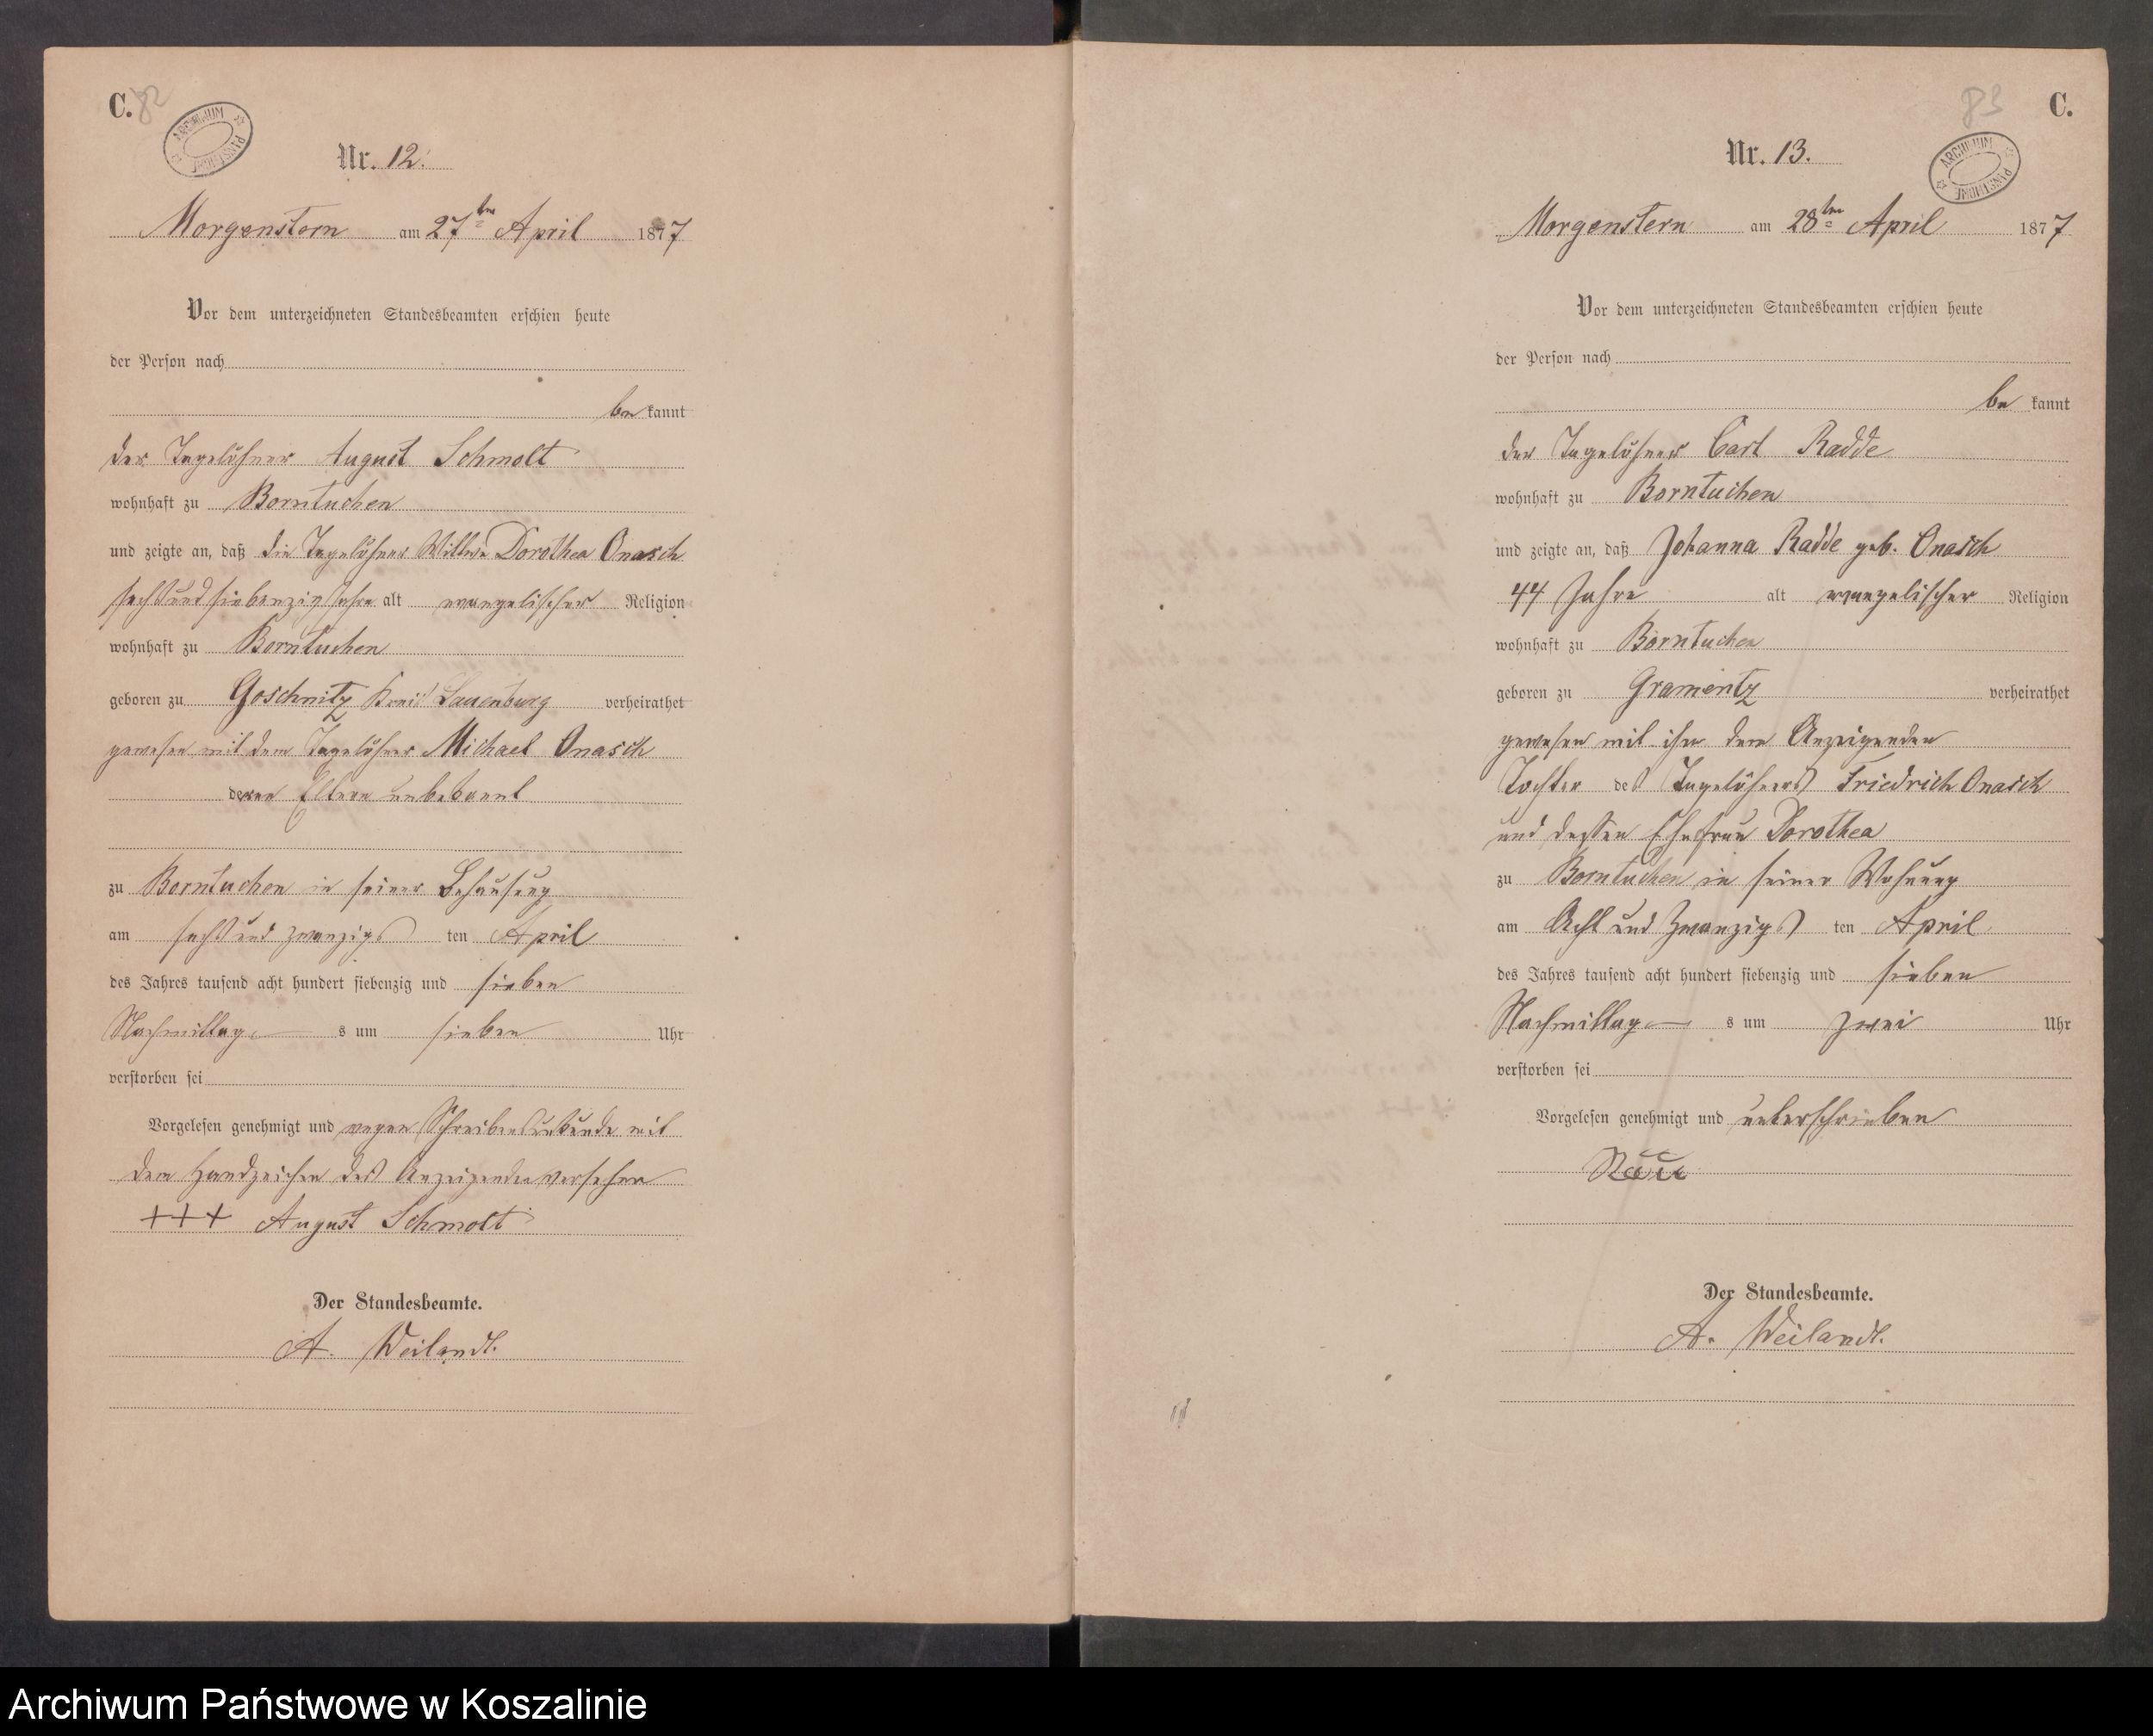 C.
82
ARCHIWUM PAŃSTWOWE
Nr. 12.
Morgenstern am 27ten April 1877
Vor dem unterzeichneten Standesbeamten erschien heute
der Person nach
be kannt
der Tagelöhner August Schmolt
wohnhaft zu Borntuchen
und zeigte an, daß die Tagelöhner Wittwe Dorothea Onasch
sechsundsiebenzig Jahre alt evangelischer Religion
wohnhaft zu Borntuchen
geboren zu Goschnitz Kreis Lauenburg verheirathet
gewesen mit dem Tagelöhner Michael Onasch
deren Eltern unbekannt
zu Borntuchen in seiner Behausung
am sechs und zwanzigs ten April
des Jahres tausend acht hundert siebenzig und sieben
Nachmittag s um sieben Uhr
verstorben sei
Vorgelesen genehmigt und wegen Schreibensunkunde mit
dem Handzeichen des Anzeigenden versehen
+++ August Schmolt
Der Standesbeamte.
A. Weilandt.
83
C.
ARCHIWUM PAŃSTWOWE
Nr. 13.
Morgenstern am 28ten April 1877
Vor dem unterzeichneten Standesbeamten erschien heute
der Person nach
be kannt
der Tagelöhner Carl Radde
wohnhaft zu Borntuchen
und zeigte an, daß Johanna Radde geb. Onasch
44 Jahre alt evangelischer Religion
wohnhaft zu Borntuchen
geboren zu Gramentz verheirathet
gewesen mit ihm dem Anzeigenden
Tochter des Tagelöhners Friedrich Onasch
und dessen Ehefrau Dorothea
zu Borntuchen in seiner Wohnung
am Acht und Zwanzigs ten April
des Jahres tausend acht hundert siebenzig und sieben
Nachmittag s um zwei Uhr
verstorben sei
Vorgelesen genehmigt und unterschrieben
Der Standesbeamte.
A. Weilandt.
Archiwum Państwowe w Koszalinie